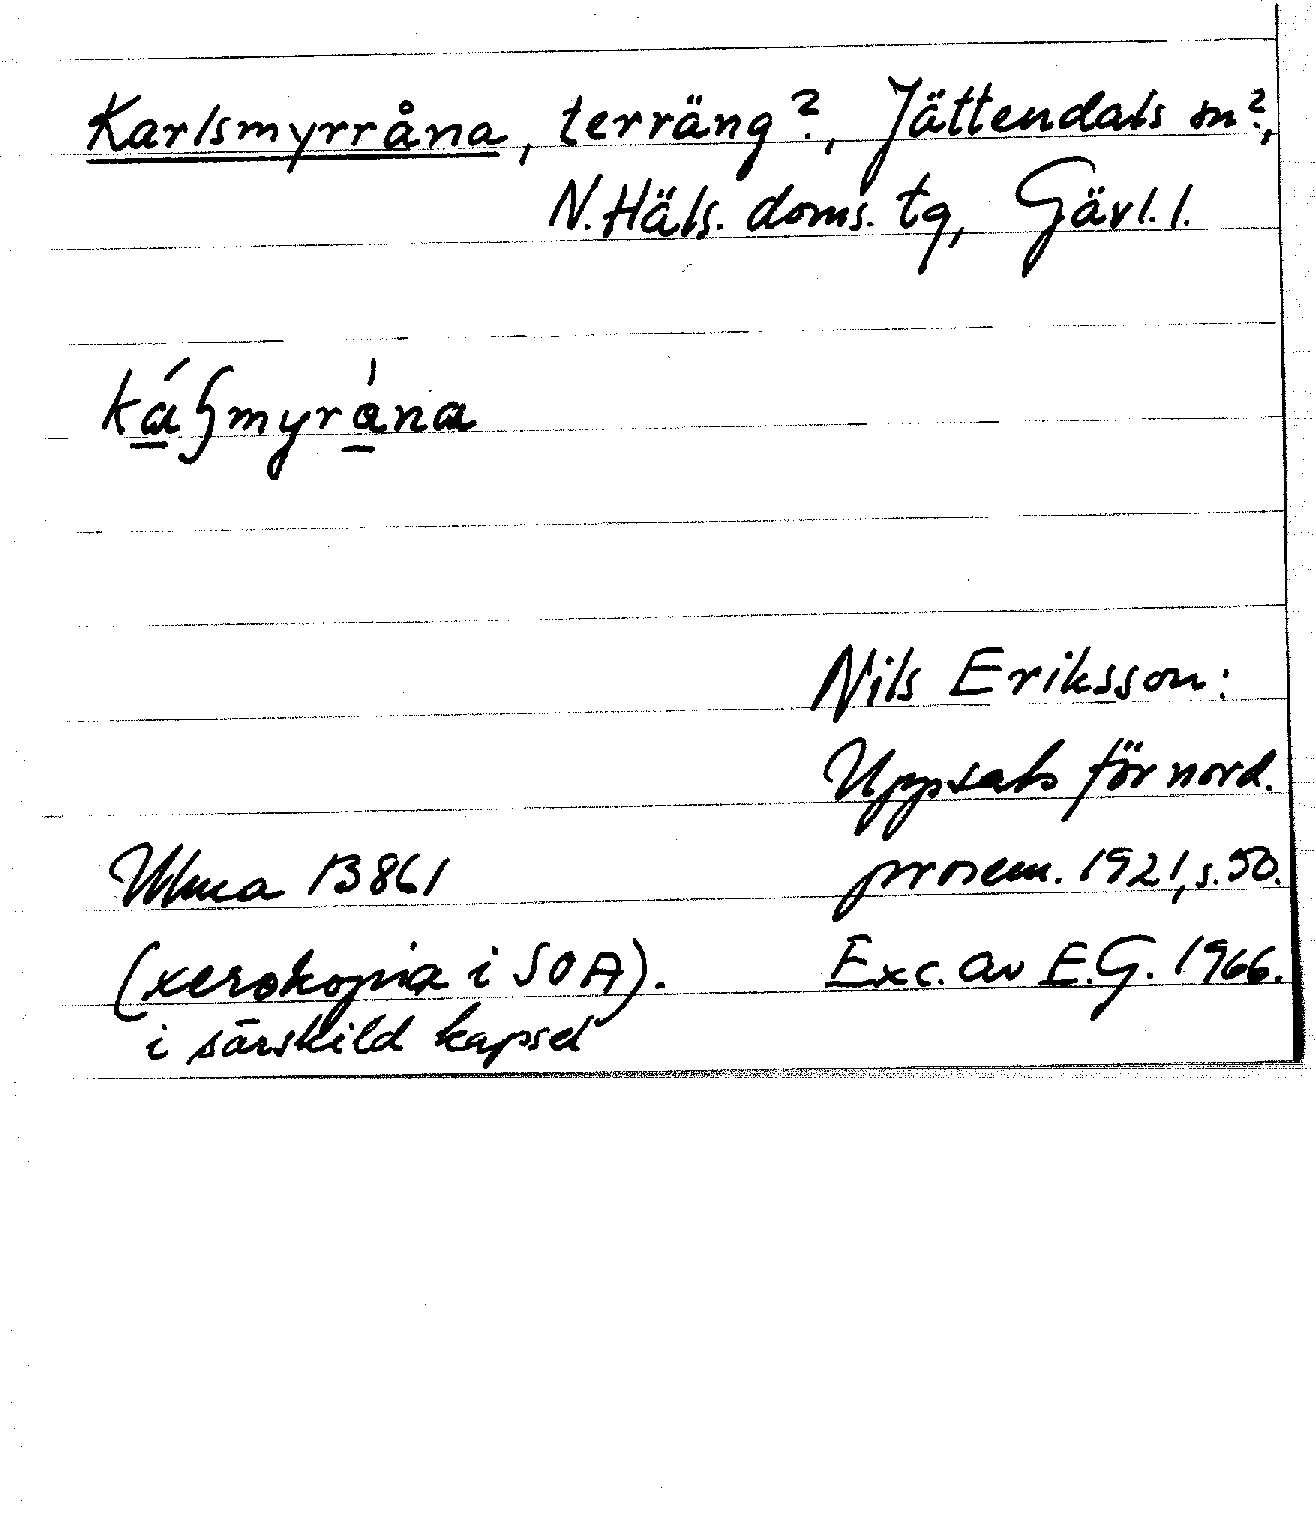 Karlsmyrråna, terräng?, Jättendals sn?,
N. Häls. doms. tg, Gävl. l.
Nils Eriksson:
Uppsats för nord.
Ulma B 861 prosem. 1921, s. 50.
(xerokopia i SOA). Exc. av E.G. 1966.
i särskild kapsel